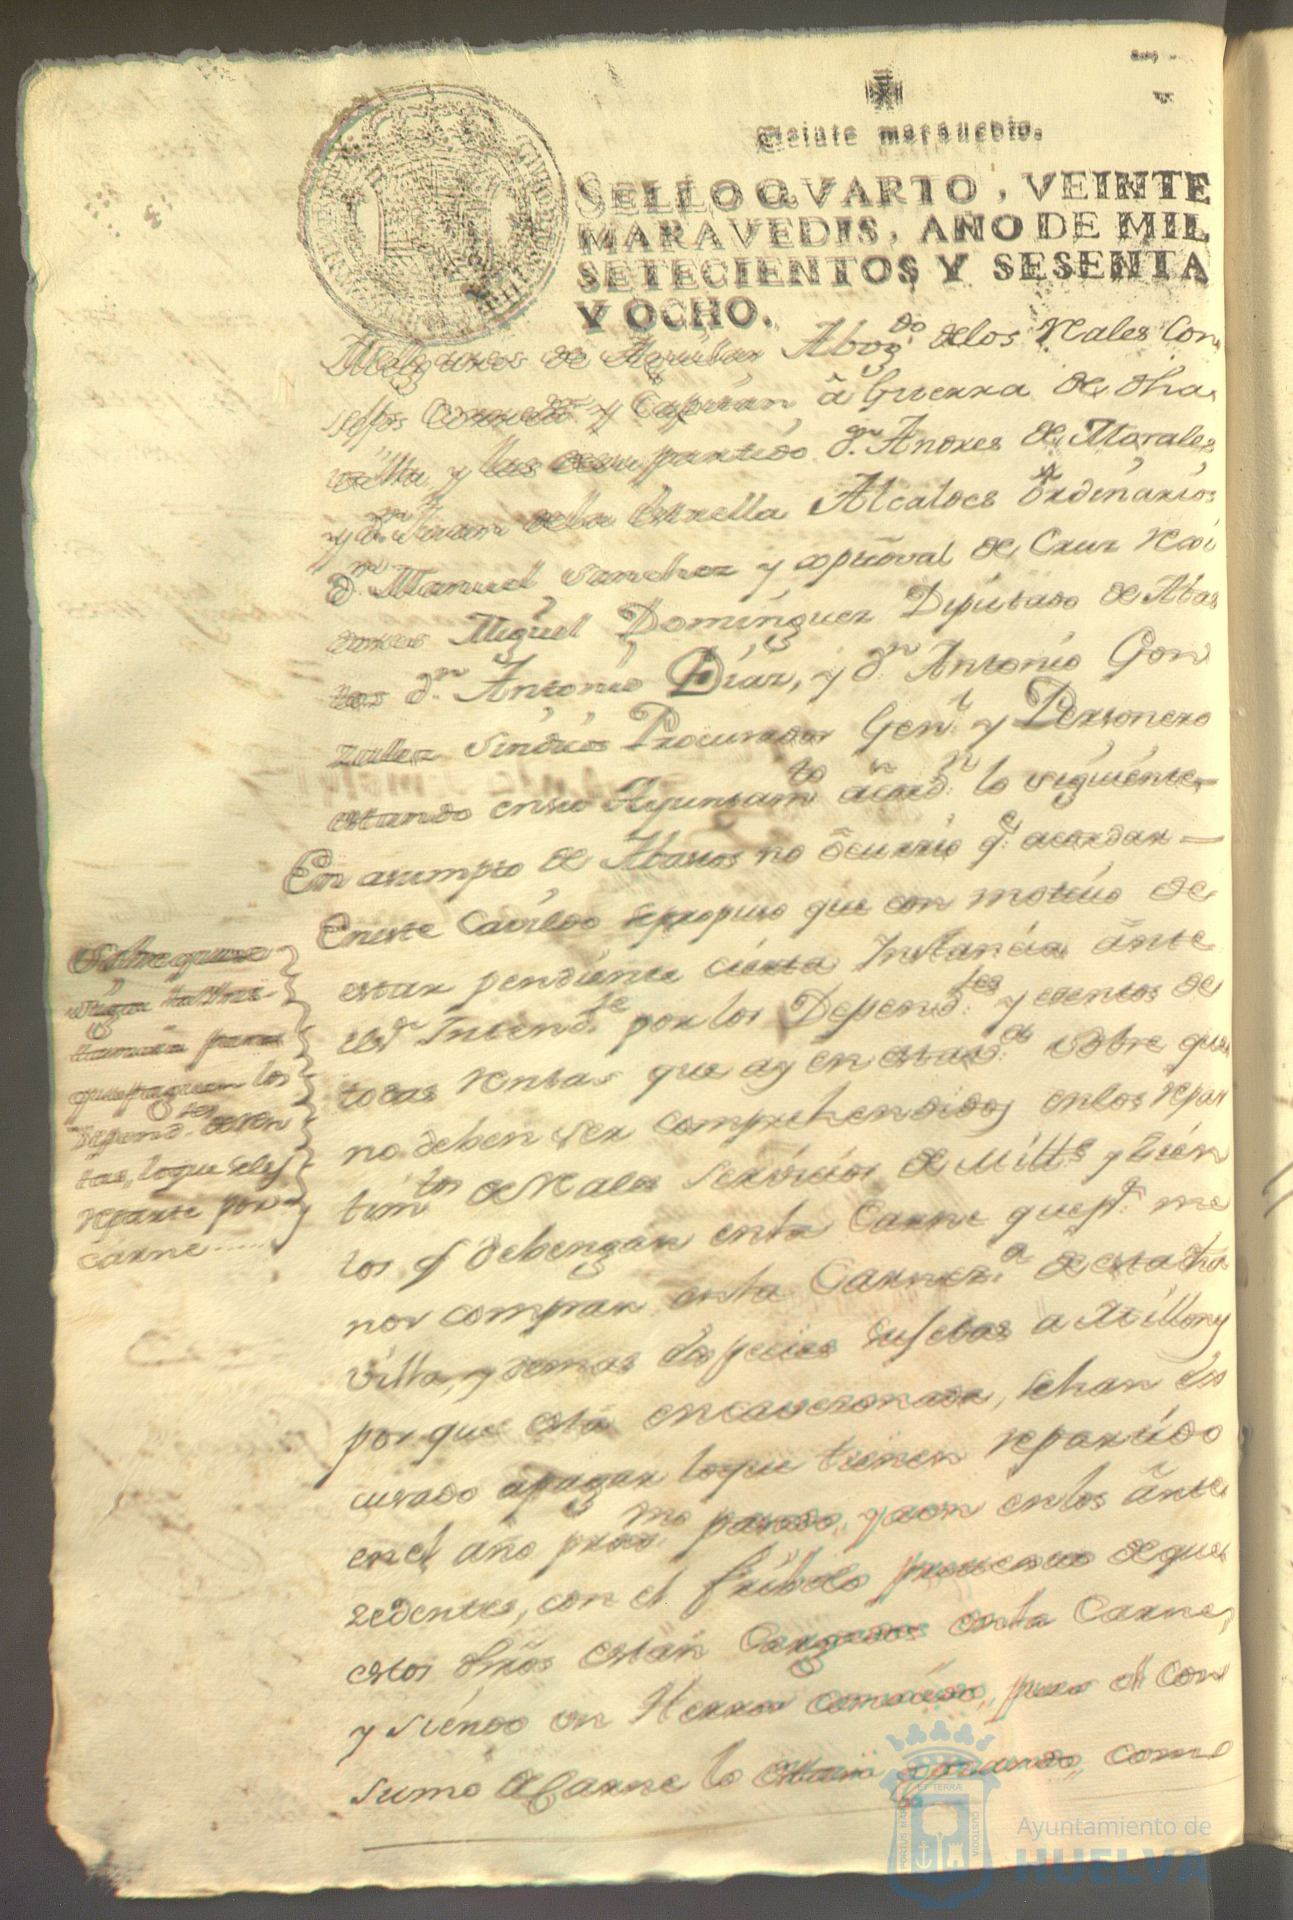 Veinte maravedis.
SELLO QVARTO, VEINTE
MARAVEDIS, AÑO DE MIL
SETECIENTOS Y SESENTA
Y OCHO.
Melgarexo de Aguilar Abog.do delos Reales Con
sejos Corred.r y Capitan â Guerra de dha
villa y las desu partido d.n Andres de Morales
y d.n Juan dela Estrella Alcaldes ôrdinarios
d.n Manuel Sanchez y xptoval de Cruz rexi
dores Miguel Dominguez Diputado de Abas
tos d.n Antonio Diaz, y d.n Antonio Gon
zalez Sindicos Procurador Gen.l y Personero
estando ensu Ayuntam.to âcord.n lo siguiente=
En asumpto de Abastos no ôcurrio q.e acordar =
Eneste Cavildo sepropuso que con motivo de
estar pendiente cierta Instancia ânte
el S.r Intend.te por los Depend.tes y exentos de
todas rentas que ay en esta sobre que
no deben ser comprehendidos enlos repar
tim.tos de Reales Servicios de Mill.s y Cien
los q debengan enla Carne que p.r me
nor compran enla Carnez.a de esta dha
villa, y demas expecies sujetas a Millony
por que está encavezonada, sehan es
cusado apagar loque tienen repartido
enel año prox.mo pasado, y aon enlos ânte
zedentes, con el fribolo pretexto deque
estos dhos estan Cargados enla Carne,
y siendo un Herror conocido, pues el con
sumo de Carne lo estan gozando, como
Sobre quese
siga la Ins
tancia para
que paguen los
Depend.tes deren
tas, loque seles
reparte por
carne.....
Ayuntamiento de
HUELVA